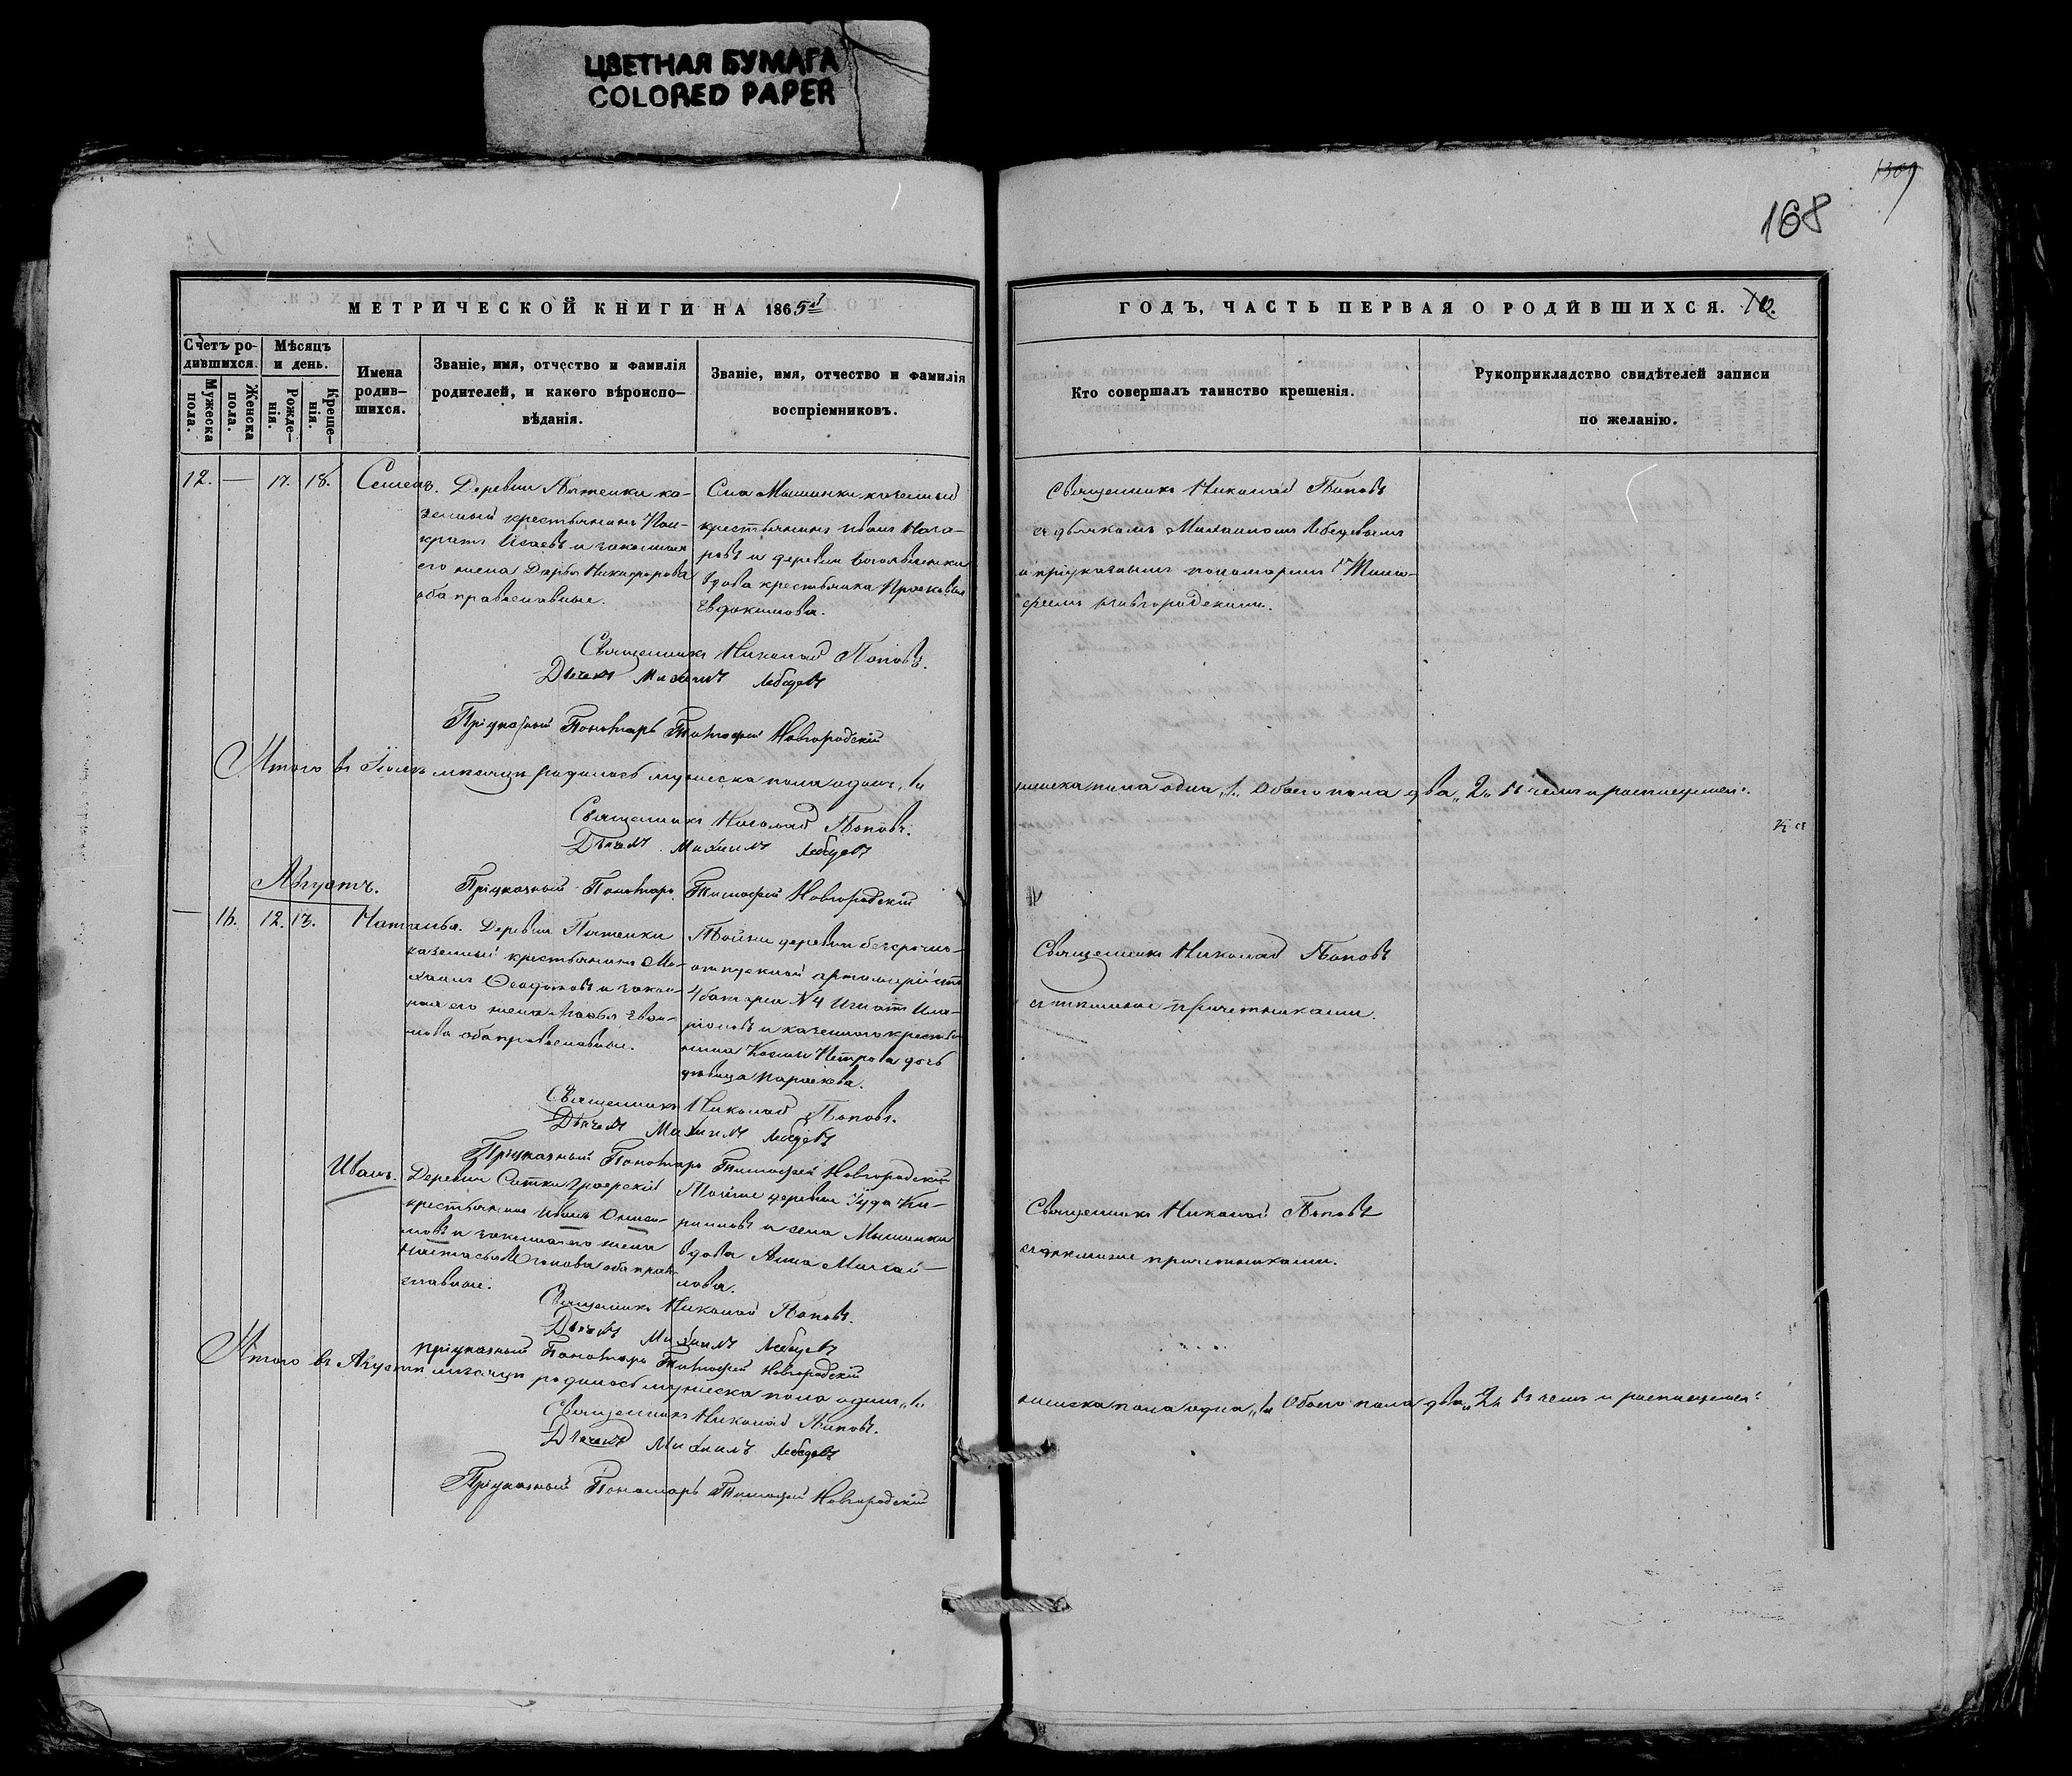 ЦВЕТНАЯ БУМАГА
COLORED PAPER
1309
168
МЕТРИЧЕСКОЙ КНИГИ НА 1865й
ГОДЪ, ЧАСТЬ ПЕРВАЯ О РОДИВШИХСЯ. 10.
Счетъ ро-
дившихся.
Мужеска
пола.
Женска
пола.
Мѣсяцъ
и день.
Рожде-
нія.
Креще-
нія.
Имена
родив-
шихся.
Званіе, имя, отчество и фамилія
родителей, и какого вѣроиспо-
вѣданія.
Званіе, имя, отчество и фамилія
воспріемниковъ.
Кто совершалъ таинство крещенія.
Рукоприкладство свидѣтелей записи
по желанію.
12. — 17. 18. Семенъ.
Деревни ка-
зенный крестьянинъ Пан-
кратъ Исаевъ и законная
его жена Дарья Никифорова
оба православные.
Села Мышинки казенный
крестьянинъ Иванъ
и деревни
вдова крестьянка Просковья
Евдокимова.
Священникъ Николай Поповъ
съ дьячкомъ Михаиломъ Лебедевымъ
и пріуказнымъ пономаремъ Тимо-
феемъ Новгородскимъ.
Священникъ Николай Поповъ.
Дьячекъ Михаилъ Лебедевъ
Пріуказный Пономарь Тимофей Новгородскій
Итого въ Іюлѣ мѣсяцѣ родилось мужеска пола одинъ „1„
женска пола одна „1„ Обоего пола два „2„ въ чемъ и росписуемся:
Священникъ Николай Поповъ.
Дьячекъ Михаилъ Лебедевъ
Пріуказный Пономарь Тимофей Новгородскій
Августъ.
— 16. 12. 13. Наталья.
Деревни
казенный крестьянинъ Ми-
хаилъ Феодотовъ и закон-
ная его жена
оба православные.
Тойже деревни безсрочно-
отпускной артиллеристъ
4 батареи N 4 Игнатъ Ила-
ріоновъ и казеннаго крестья-
нина Козьмы Петрова дочь
дѣвица Параскева.
Священникъ Николай Поповъ
съ тѣмиже причетниками.
Священникъ Николай Поповъ.
Дьячекъ Михаилъ Лебедевъ
Пріуказный Пономарь Тимофей Новгородскій
Иванъ.
Деревни Сатки
крестьянинъ Иванъ Онисі-
мовъ и законная его жена
Настасья оба право-
славные.
Тойже деревни Іуда Ки-
риловъ и села Мышинки
вдова Анна Михай-
лова.
Священникъ Николай Поповъ
съ тѣмиже причетниками.
Священникъ Николай Поповъ.
Дьячекъ Михаилъ Лебедевъ
Пріуказный Пономарь Тимофей Новгородскій
Итого въ Августѣ мѣсяцѣ родилось мужеска пола одинъ „1„
женска пола одна „1„ Обоего пола два „2„ въ чемъ и росписуемся:
Священникъ Николай Поповъ.
Дьячекъ Михаилъ Лебедевъ
Пріуказный Пономарь Тимофей Новгородскій